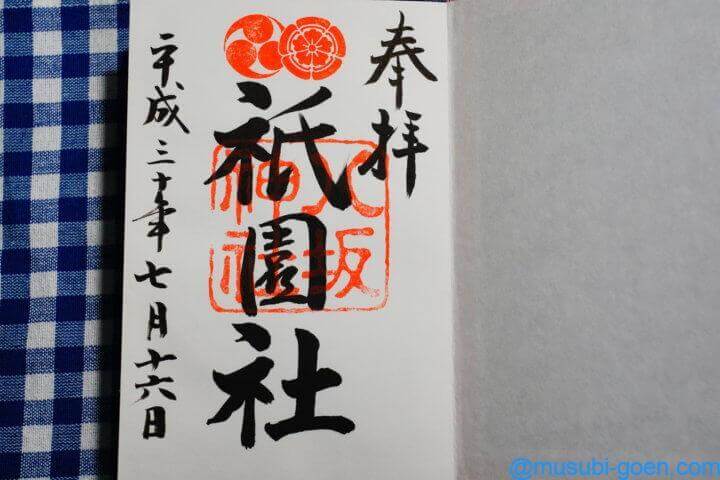 奉拝
祇園社
八坂
神社
平成三十年七月十六日
@musubi-goen.com